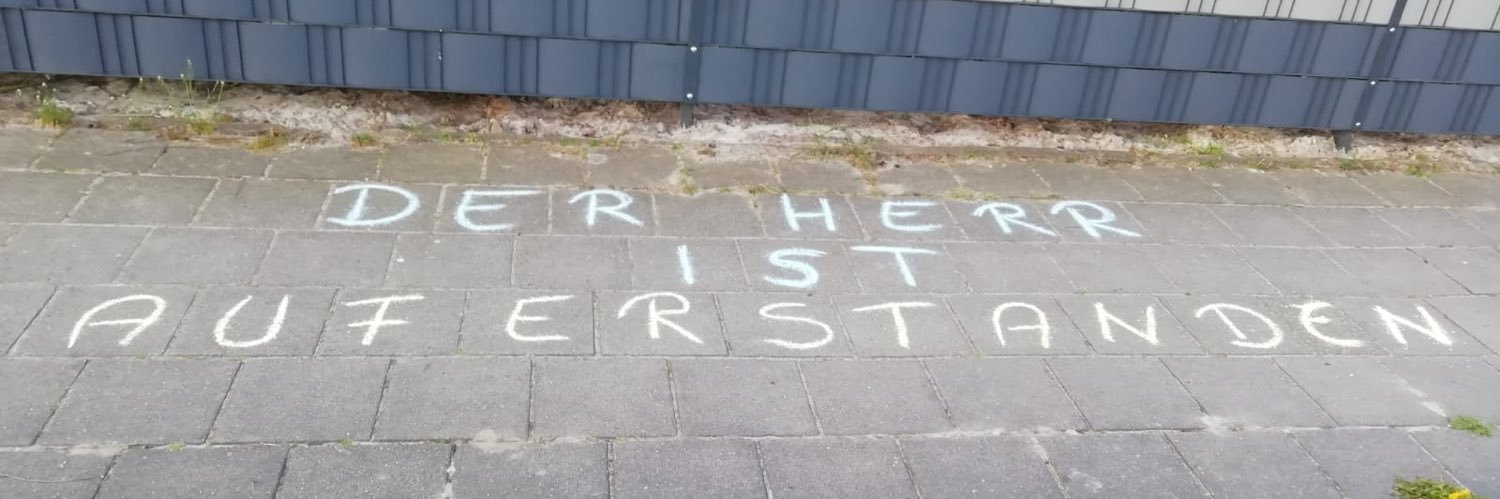 DER HERR
IST
AUFERSTANDEN